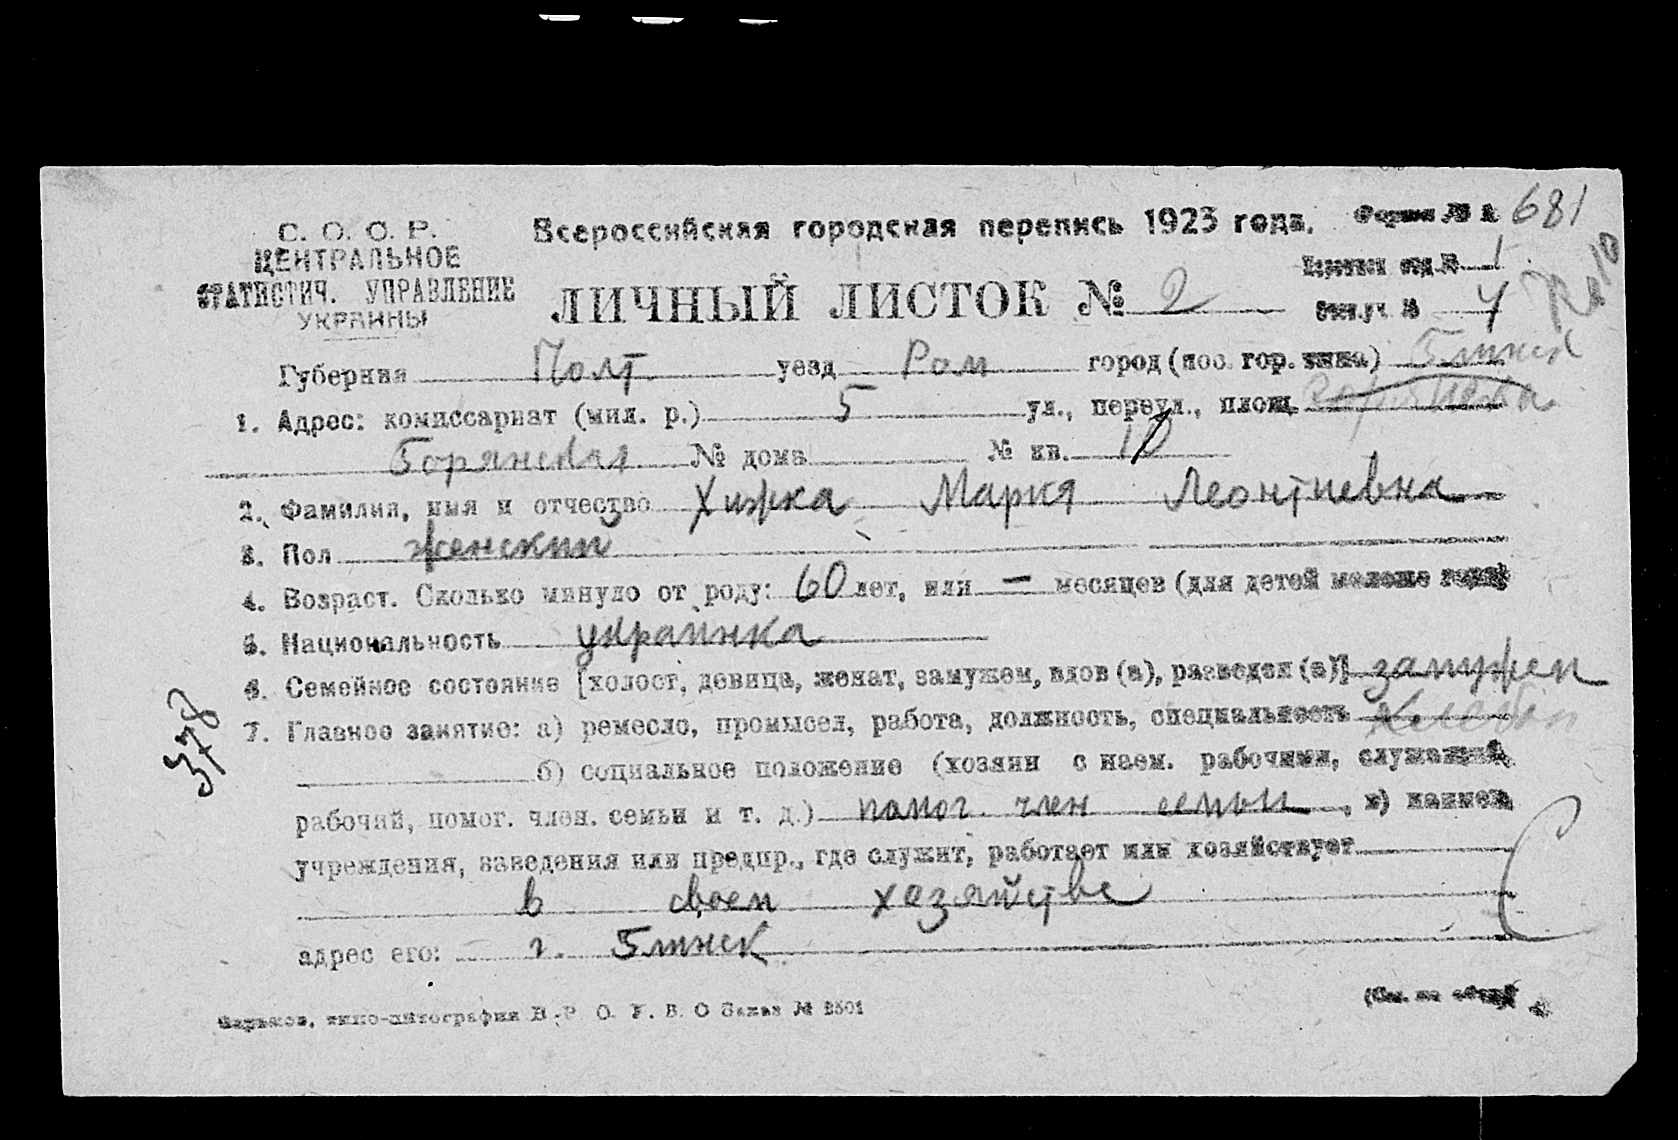 681
С. С. С. Р.
ЦЕНТРАЛЬНОЕ
СТАТИСТИЧ. УПРАВЛЕНИЕ
УКРАИНЫ
Всероссийская городская перепись 1923 года. Форма №
ЛИЧНЫЙ ЛИСТОК № 2
отд. № 1
№ 4
Губерния Полт уезд Ром город (пос. гор. типа) Глинск
1. Адрес: комиссариат (мил. р.) 5 ул., переул., площ.
Горянская № дома № кв. 10
2. Фамилия, имя и отчество Хижка Мария Леонтиевна
3. Пол женский
4. Возраст. Сколько минуло от роду: 60 лет, или — месяцев (для детей моложе года)
5. Национальность украинка
6. Семейное состояние [холост, девица, женат, замужем, вдов (а), разведен (а)] замужем
378
7. Главное занятие: а) ремесло, промысел, работа, должность, специальность
б) социальное положение (хозяин с наем. рабочими, служащий,
рабочий, помог. член. семьи и т. д.) помог. член семьи, в) наимен.
учреждения, заведения или предпр., где служит, работает или хозяйствует
в своем хозяйстве
адрес его: г. Глинск
Харьков, типо-литография В. Заказ № 2501
(См. на обор.)